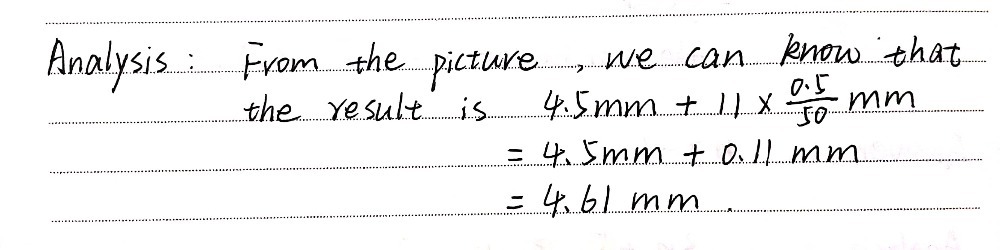 Analysis : From the picture , we can know that
the result is 4.5mm + 11 × 0.5/50 mm
= 4.5mm + 0.11 mm
= 4.61 mm .